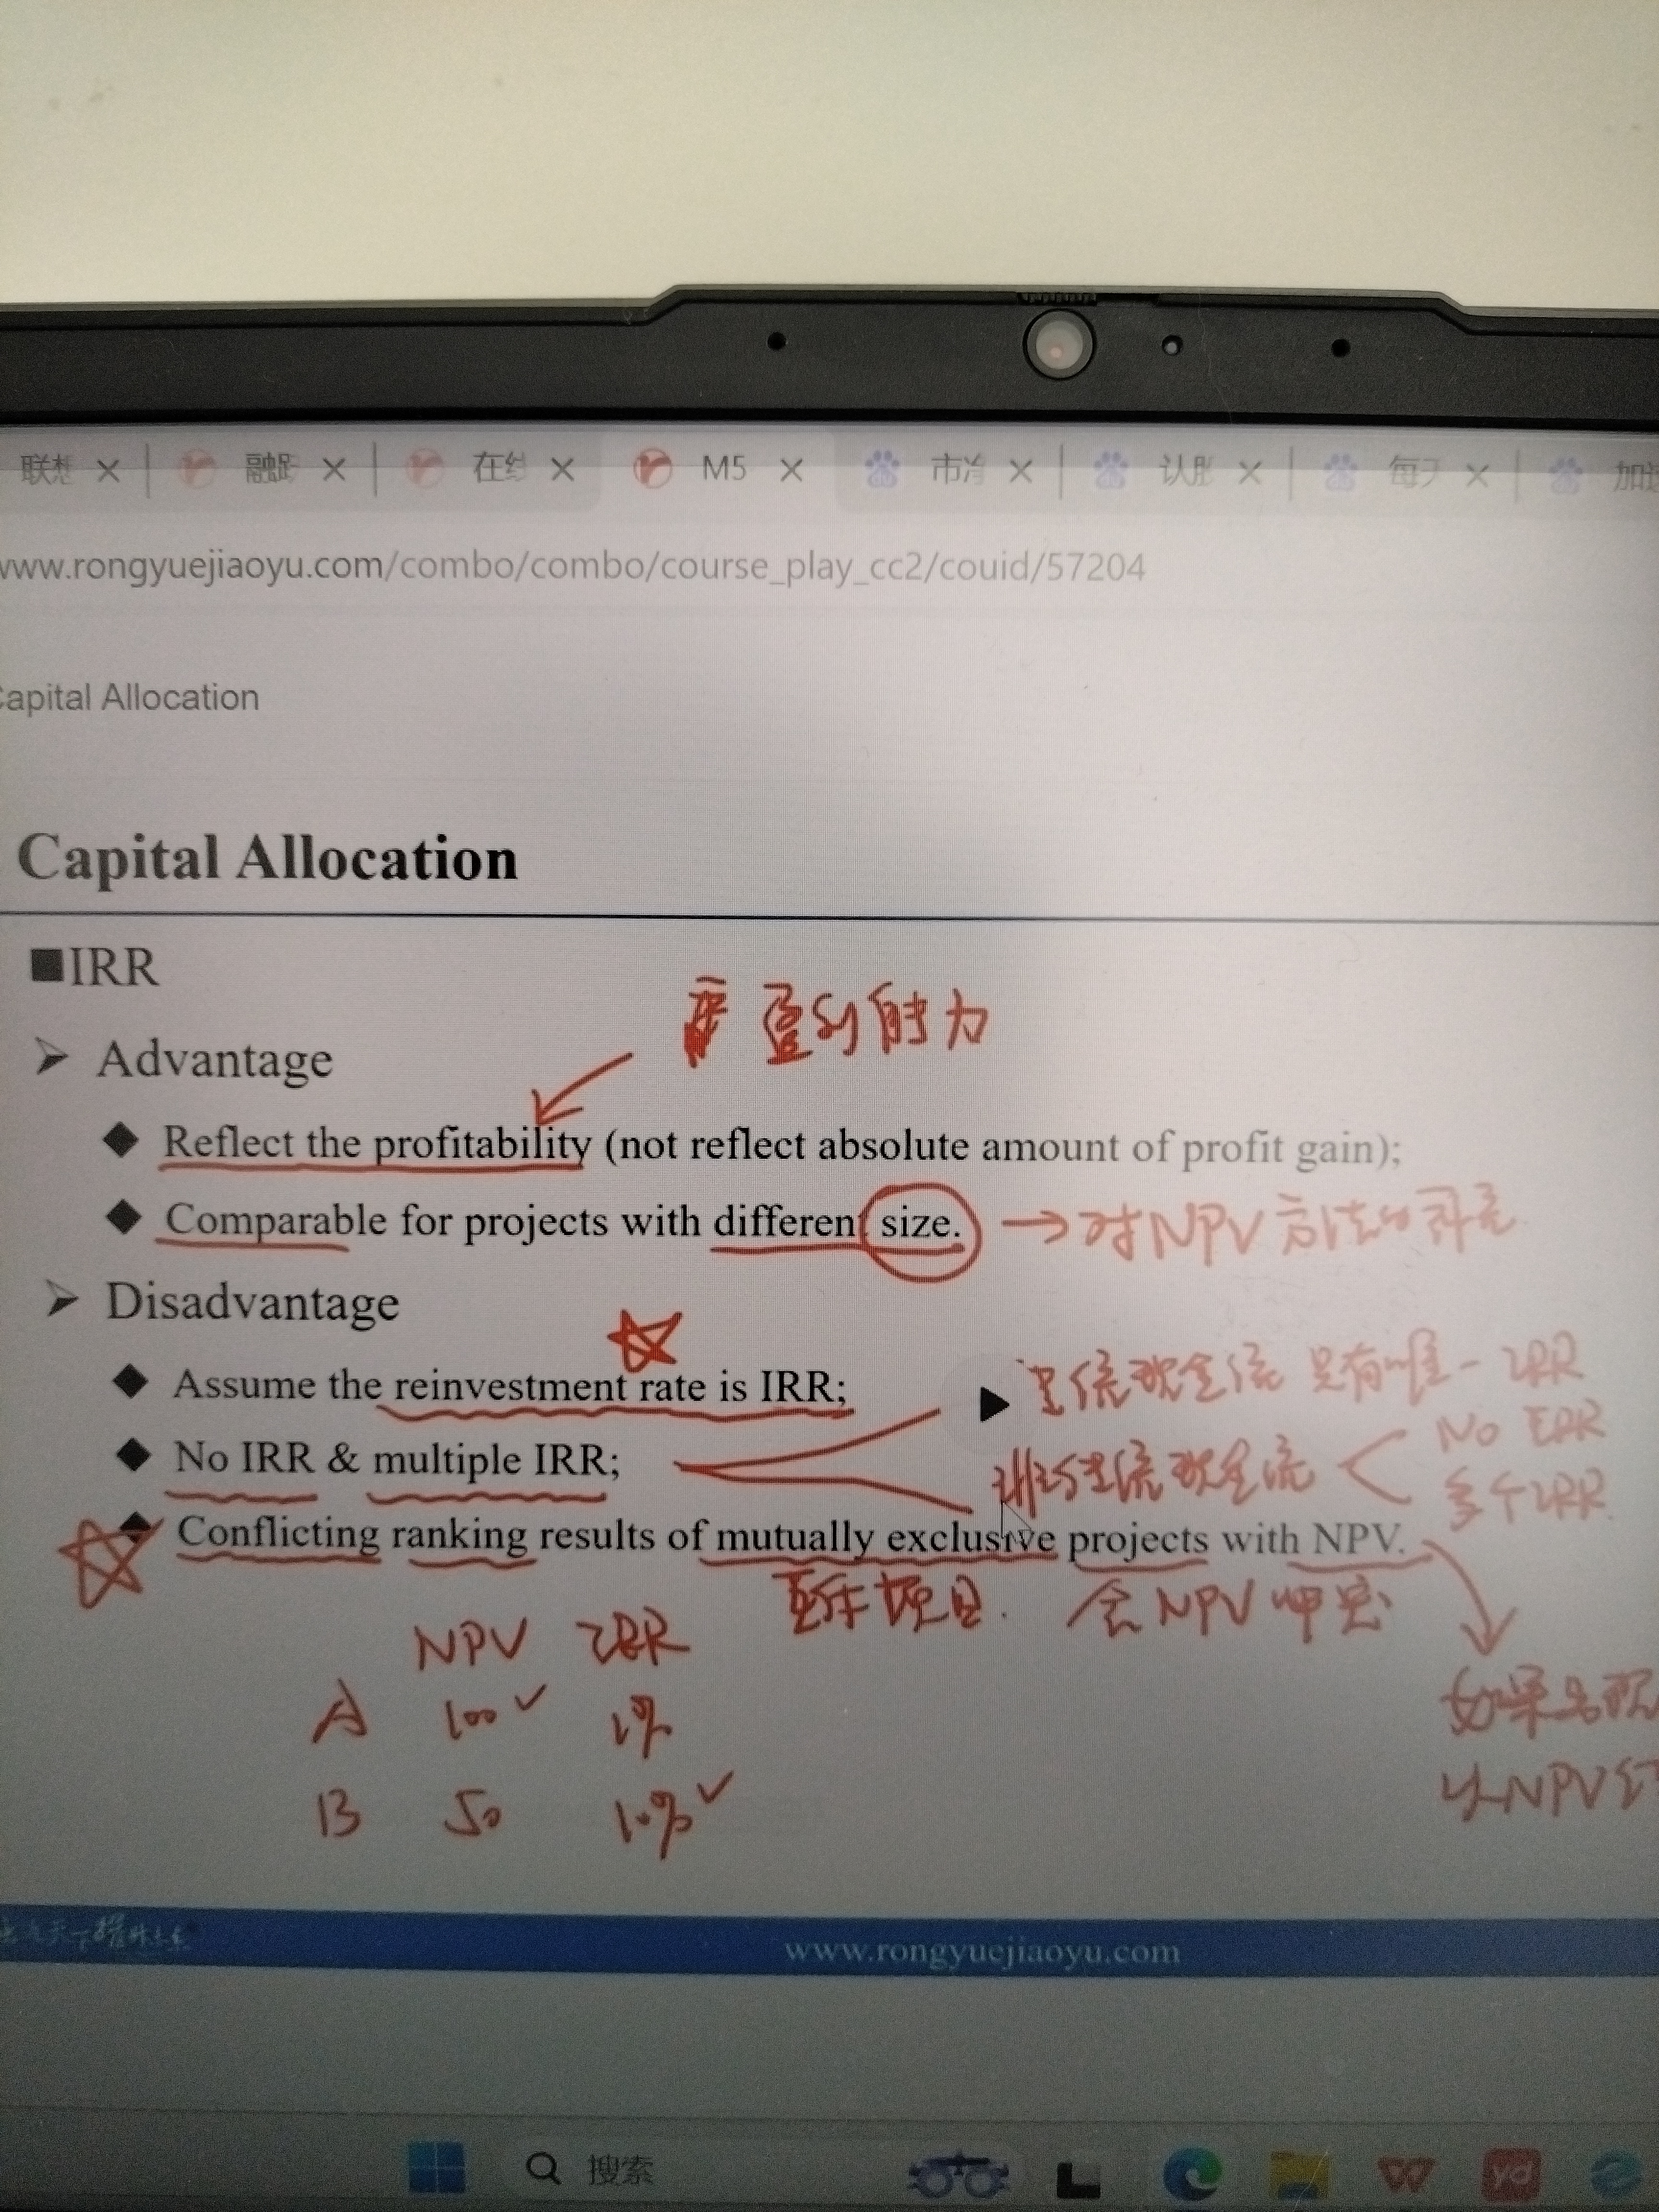 联想 融跃 在线 M5 市 认 每天 加
www.rongyuejiaoyu.com/combo/combo/course_play_cc2/couid/57204
Capital Allocation
Capital Allocation
■IRR
盈利能力
➢ Advantage
◆ Reflect the profitability (not reflect absolute amount of profit gain);
◆ Comparable for projects with different size. → 对NPV方法的补充
➢ Disadvantage
◆ Assume the reinvestment rate is IRR;
常规现金流 只有唯一IRR
◆ No IRR & multiple IRR;
现金流 No IRR
多个IRR
◆ Conflicting ranking results of mutually exclusive projects with NPV.
互斥项目. 会NPV冲突
NPV IRR
如果出现
A 100 ✓ 1%
以NPV
B 50 10% ✓
www.rongyuejiaoyu.com
搜索